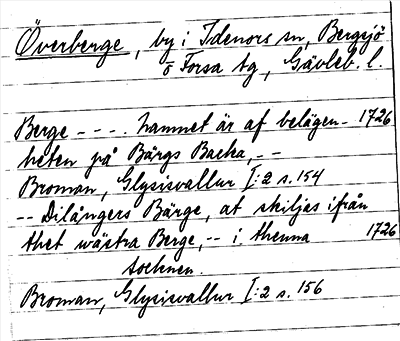 Överberge, by i Idenors sn, Bergsjö
o Forsa tg, Gävleb. l.
Berge - - - . hamnet är af belägen- 1726
heten på Bärgs Backa, - -
Broman, Glysisvallur I:2 s. 154
- - Dilångers Bärge, at skiljas ifrån
thet wästra Berge, - - i thenna 1726
sochnen.
Broman, Glysisvallur I:2 s. 156